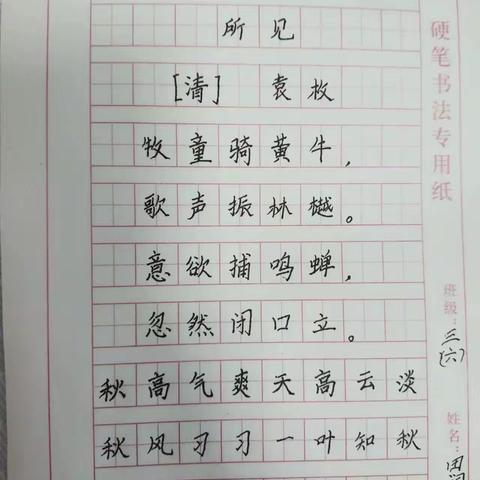 所见
[清] 袁枚
牧童骑黄牛，
歌声振林樾。
意欲捕鸣蝉，
忽然闭口立。
秋高气爽天高云淡
秋风习习一叶知秋
硬笔书法专用纸
班级：三(六)
姓名：田